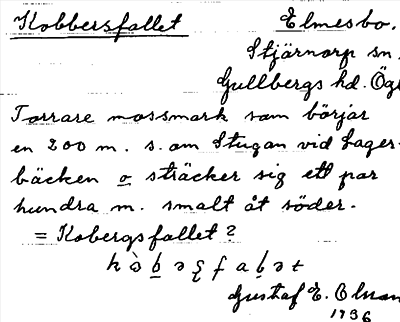 Kobbersfallet Elmesbo.
Stjärnorp sn.
Gullbergs hd. Ögl
Torrare mossmark som börjar
en 200 m. s. om Stugan vid Lager-
bäcken o sträcker sig ett par
hundra m. smalt åt söder.
= Kobergsfallet?
Gustaf E. Olsson
1936